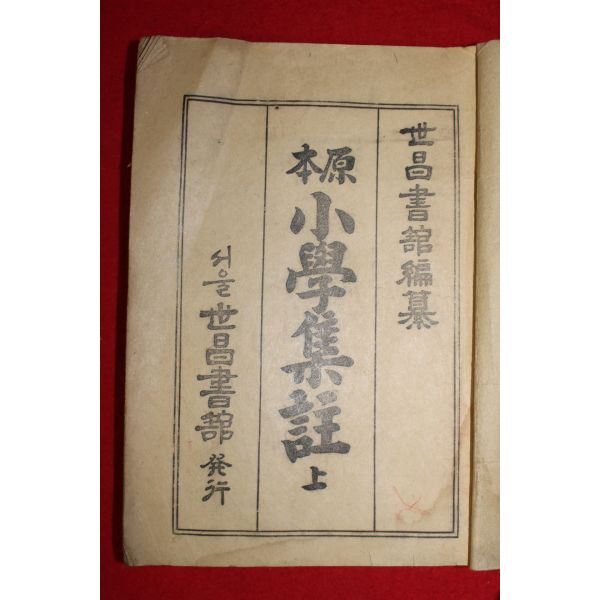 世昌書舘編纂
原本
小學集註 上
서울 世昌書舘 発行